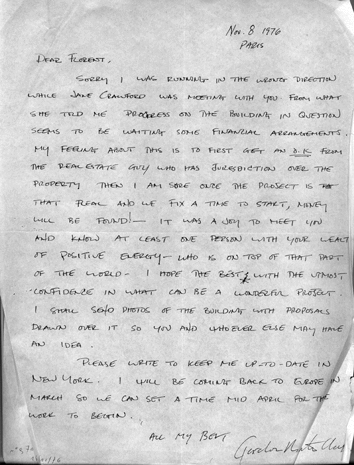 Nov. 8 1976
PARIS
DEAR FLORENT,
SORRY I WAS RUNNING IN THE WRONG DIRECTION
WHILE JANE CRAWFORD WAS MEETING WITH YOU FROM WHAT
SHE TOLD ME PROGRESS ON THE BUILDING IN QUESTION
SEEMS TO BE WAITING SOME FINANCIAL ARRANGEMENTS.
MY FEELING ABOUT THIS IS TO FIRST GET AN O.K. FROM
THE REAL ESTATE GUY WHO HAS JURESDICTION OVER THE
PROPERTY THEN I AM SURE ONCE THE PROJECT IS
THAT REAL AND WE FIX A TIME TO START, MONEY
WILL BE FOUND! — IT WAS A JOY TO MEET YOU
AND KNOW AT LEAST ONE PERSON WITH YOUR
OF POSITIVE ENERGY - WHO IS ON TOP OF THAT PART
OF THE WORLD - I HOPE THE BEST WITH THE UTMOST
CONFIDENCE IN WHAT CAN BE A WONDERFUL PROJECT.
I SHALL SEND PHOTOS OF THE BUILDING WITH PROPOSALS
DRAWN OVER IT SO YOU AND WHOEVER ELSE MAY HAVE
AN IDEA.
PLEASE WRITE TO KEEP ME UP-TO-DATE IN
NEW YORK. I WILL BE COMING BACK TO EUROPE IN
MARCH SO WE CAN SET A TIME MID APRIL FOR THE
WORK TO BEGIN.
ALL MY BEST